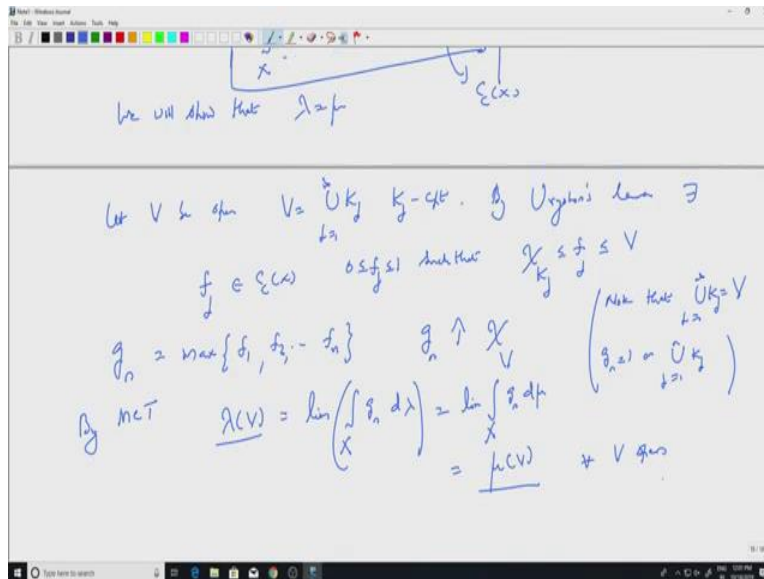 Note1 - Windows Journal
File Edit View Insert Actions Tools Help
X
C_c(X)
We will show that λ = μ
Let V be open V = ∞∪j=1 K_j K_j - cpt. By Urysohn's lemma ∃
f_j ∈ C_c(X) 0 ≤ f_j ≤ 1 such that χ_{K_j} ≤ f_j ≤ V
g_n = max{f_1, f_2, .. f_n} g_n ↑ χ_V
(Note that ∞∪j=1 K_j = V
g_n = 1 on n∪j=1 K_j)
By MCT λ(V) = lim(∫_X g_n dλ) = lim ∫_X g_n dμ
= μ(V) ∀ V open
Type here to search
ENG